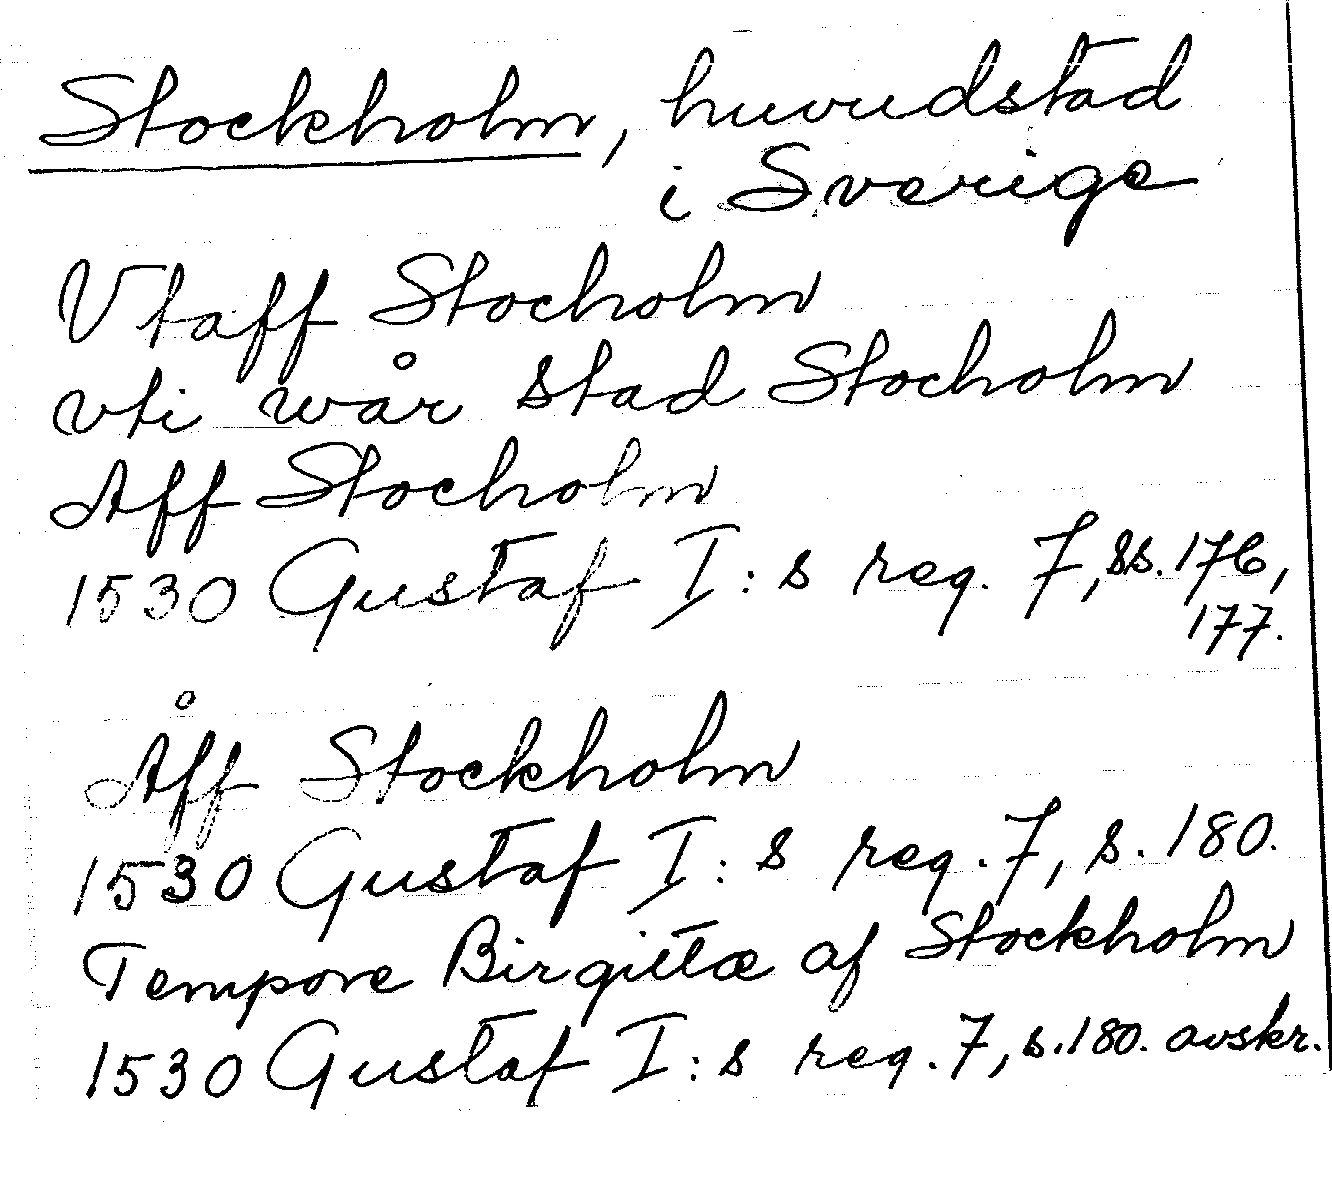 Stockholm, huvudstad
i Sverige
Vtaff Stocholm
vti wår stad Stocholm
Aff Stocholm
1530 Gustaf I:s reg. 7, ss. 176,
177.
Åff Stockholm
1530 Gustaf I:s reg. 7, s. 180.
Tempore Birgittæ af Stockholm
1530 Gustaf I:s reg. 7, s. 180. avskr.